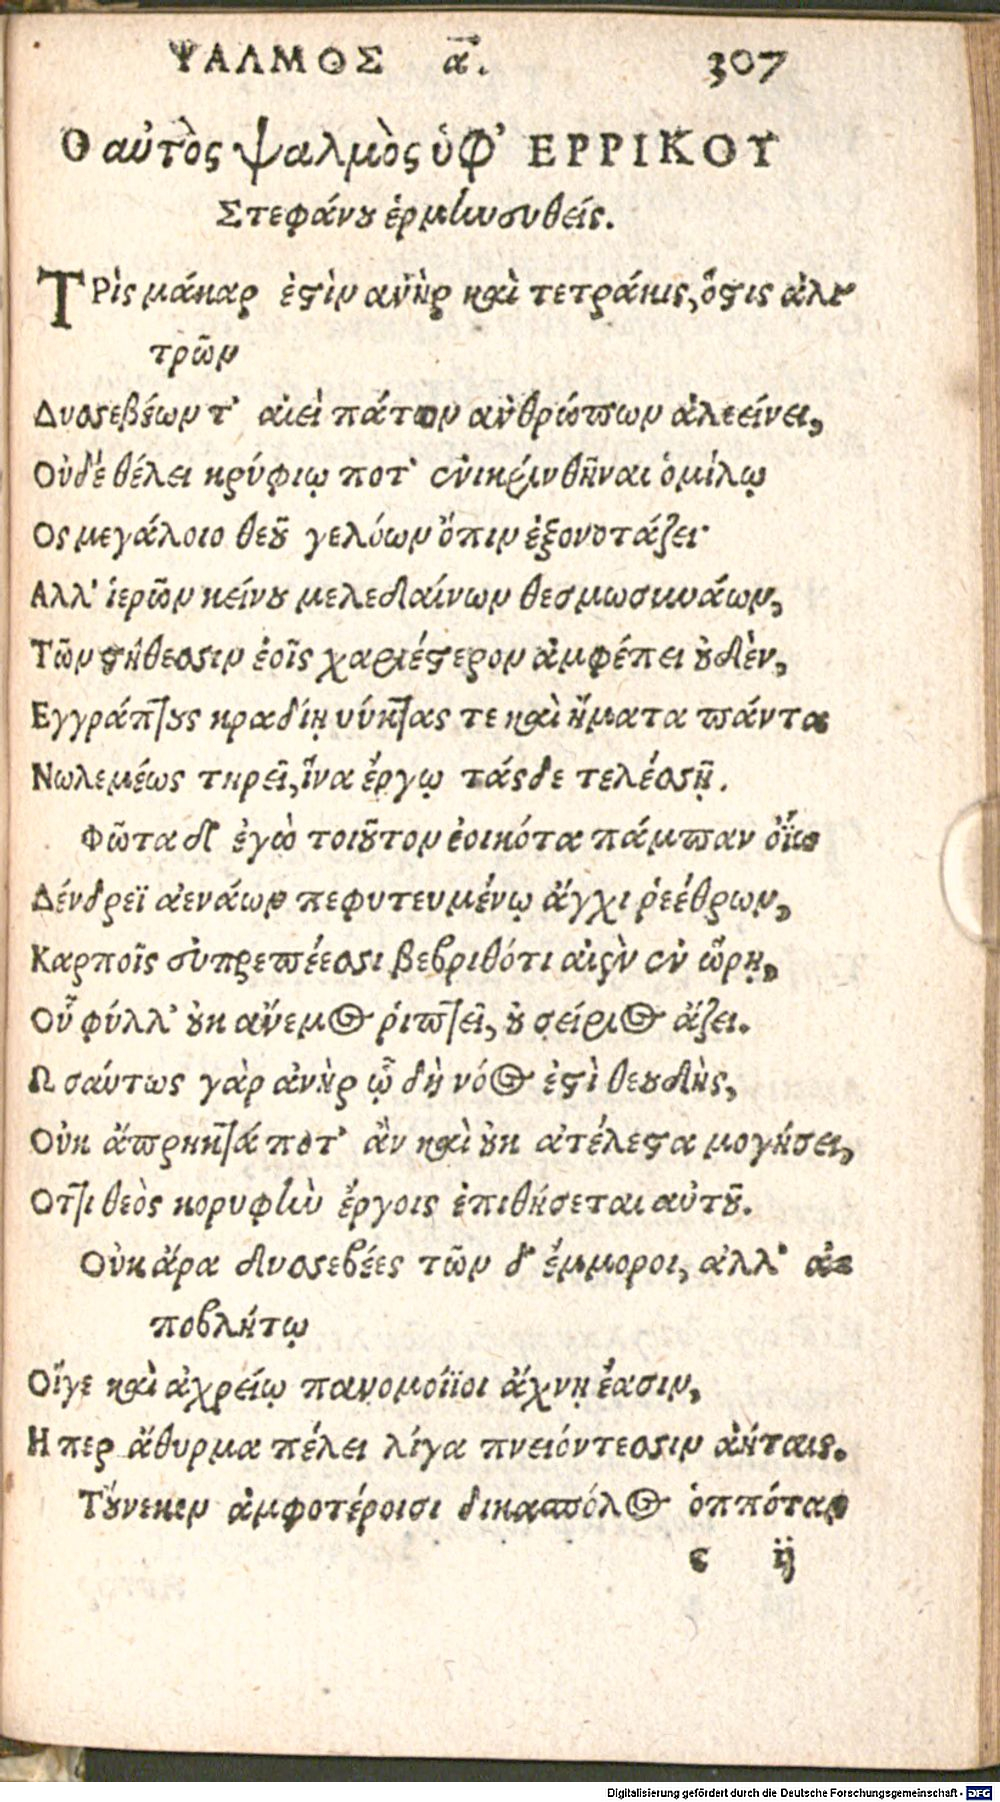 ΨΑΛΜΟΣ α. 307
Ο αὐτὸς ψαλμὸς ὑφ' ΕΡΡΙΚΟΥ
Στεφάνου ἑρμηνευθείς.
ΤΡὶς μάκαρ ἐστὶν ἀνὴρ καὶ τετράκις, ὅστις ἀλι
τρῶν
Δυσσεβέων τ' αἰεὶ πάτον ἀνθρώπων ἀλεείνει,
Οὐδὲ θέλει κρύφιῳ ποτ' ἐνικρινθῆναι ὁμίλῳ
Ος μεγάλοιο θεοῦ γελόων ὄπιν ἐξονοτάζει·
Αλλ' ἱερῶν κείνου μελεδαίνων θεσμωσυνάων,
Τῶν στήθεσσιν ἑοῖς χαριέστερον ἀμφέπει οὐδὲν,
Εγγράπτους κραδίῃ νύκτας τε καὶ ἤματα πάντα
Νωλεμέως τηρεῖ, ἵνα ἔργῳ τάσδε τελέσσῃ.
Φῶτα δ' ἐγὼ τοιοῦτον ἐοικότα πάμπαν ὀΐω
Δένδρεϊ ἀενάων πεφυτευμένῳ ἄγχι ῥεέθρων,
Καρποῖς εὐπρεπέεσσι βεβριθότι αἰὲν ἐν ὥρῃ,
Οὗ φύλλ' οὐκ ἄνεμος ῥιπτεῖ, οὐ σείριος ἄζει.
Ω σαύτως γὰρ ἀνὴρ ᾧ δὴ νόος ἐστὶ θεουδὴς,
Οὐκ ἄπρηκτά ποτ' ἂν καὶ οὐκ ἀτέλεστα μογήσει,
Οττι θεὸς κορυφὴν ἔργοις ἐπιθήσεται αὐτοῦ.
Οὐκ ἄρα δυσσεβέες τῶν δ' ἔμμοροι, ἀλλ' ἀ-
ποβλήτῳ
Οἵγε καὶ ἀχρείῳ πανομοίϊοι ἄχνῃ ἔασιν,
Η περ ἄθυρμα πέλει λίγα πνειόντεσσιν ἀήταις.
Τοὔνεκεν ἀμφοτέροισι δικασπόλος ὁππόταν
c ij
Digitalisierung gefördert durch die Deutsche Forschungsgemeinschaft - DFG